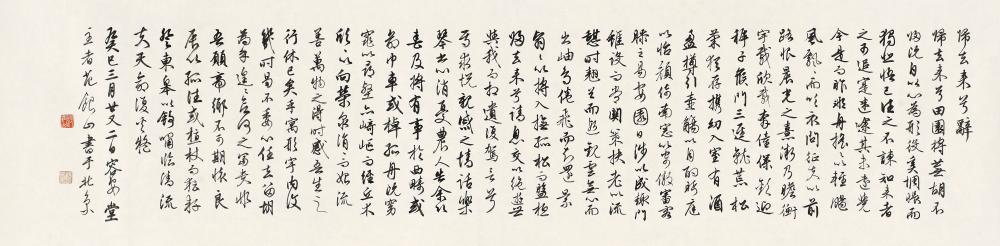 歸去來兮辭
歸去來兮田園將蕪胡不
歸既自以心為形役奚惆悵而
獨悲悟已往之不諫知來者
之可追寔迷途其未遠覺
今是而昨非舟搖搖以輕颺
風飄飄而吹衣問征夫以前
路恨晨光之熹微乃瞻衡
宇載欣載奔僮僕歡迎
稚子候門三逕就荒松
菊猶存攜幼入室有酒
盈樽引壺觴以自酌眄庭
以怡顏倚南窗以寄傲審容
膝之易安園日涉以成趣門
雖設而常關策扶老以流
憩時翹首而遐觀雲無心而
出岫鳥倦飛而知還景
翳翳以將入撫孤松而盤桓
歸去來兮請息交以絕遊世
與我而相遺復駕言兮
焉求悅親戚之情話樂
琴書以消憂農人告余以
春及將有事於西疇或
命巾車或棹孤舟既窈
窕以尋壑亦崎嶇而經丘木
欣欣以向榮泉涓涓而始流
善萬物之得時感吾生之
行休已矣乎寓形宇內復
幾時曷不委心以任去留胡
為乎遑遑兮欲何之富貴非
吾願帝鄉不可期懷良
辰以孤往或植杖而耘耔
登東皋以舒嘯臨清流
夫天命復奚疑
癸巳三月廿又二日容安堂
主者 山書于北京